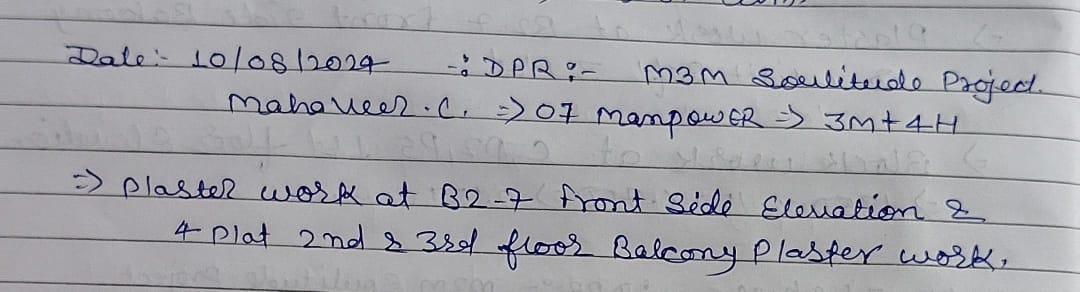 Date:- 10/08/2024 -: DPR :- M3M Soulitude Project.
Mahaveer.C. => 07 Manpower => 3M+4H
=> Plaster work at B2-7 front Side Elevation &
4 Plat 2nd & 3rd floor Balcony Plaster work.